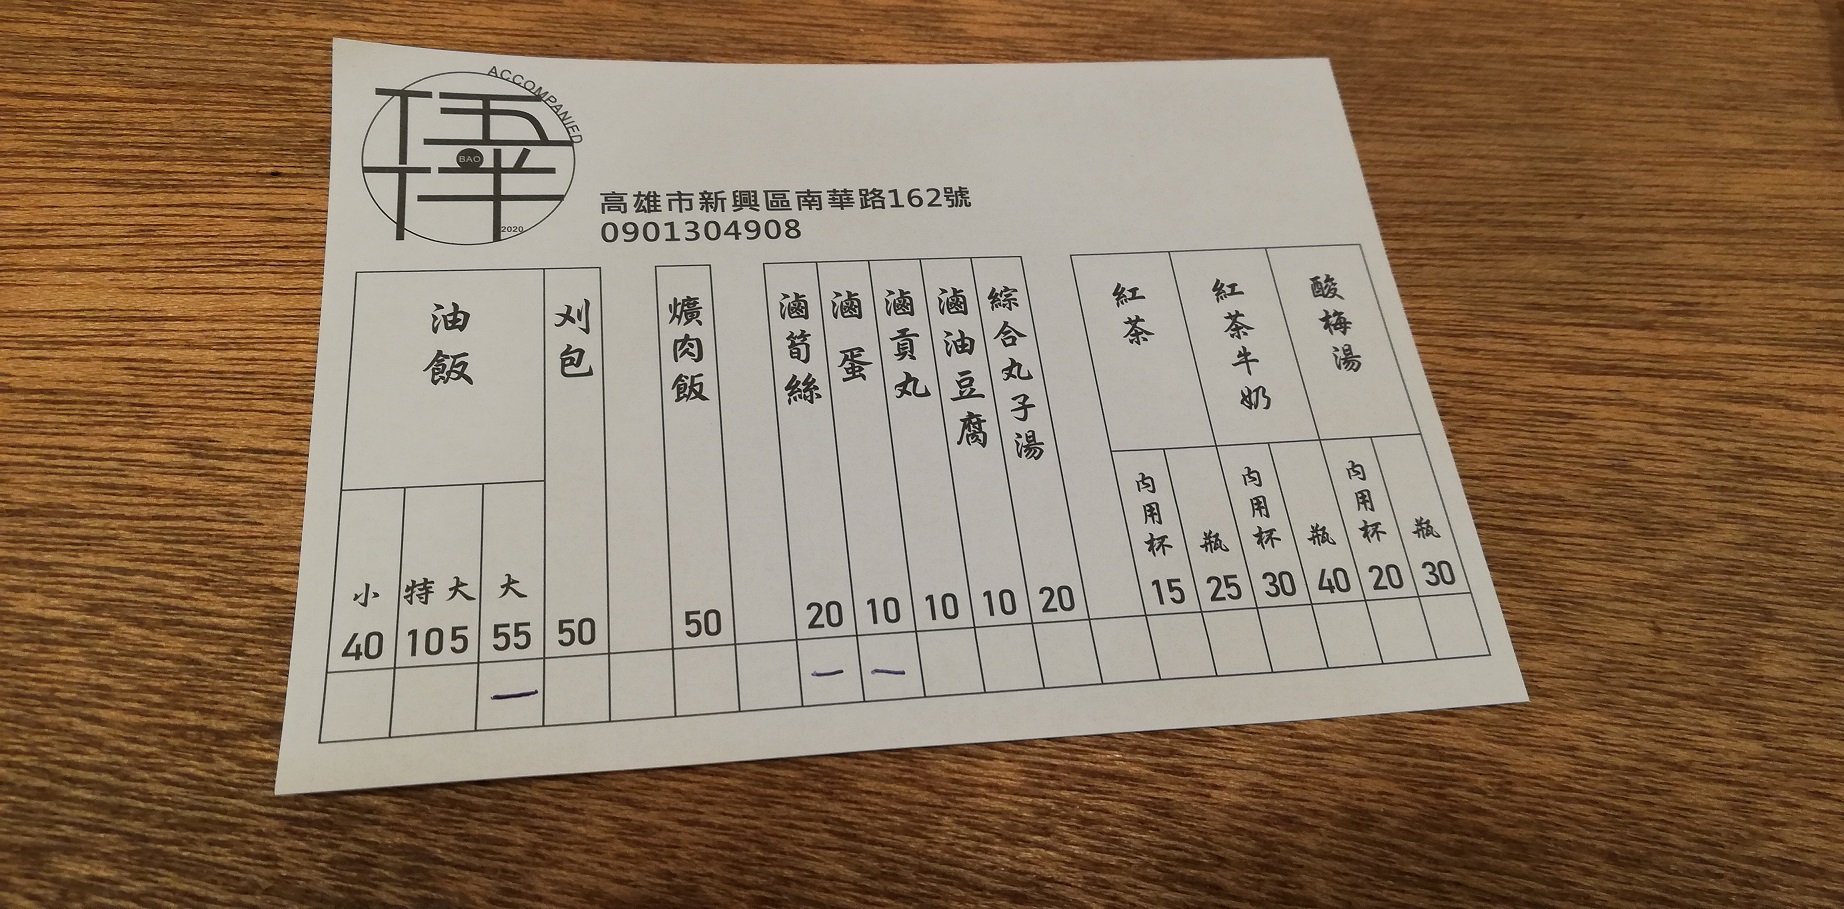 ACCOMPANIED
伍伴
BAO
2020
高雄市新興區南華路162號
0901304908
油飯
小
40
特大
105
大
55
刈包
50
爌肉飯
50
滷筍絲
20
滷蛋
10
滷貢丸
10
滷油豆腐
10
綜合丸子湯
20
紅茶
內用杯
15
瓶
25
紅茶牛奶
內用杯
30
瓶
40
酸梅湯
內用杯
20
瓶
30
一
一
一